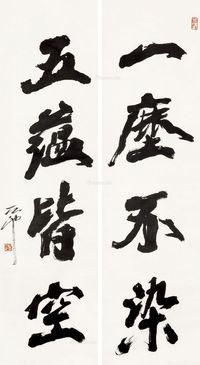 一塵不染
五蘊皆空